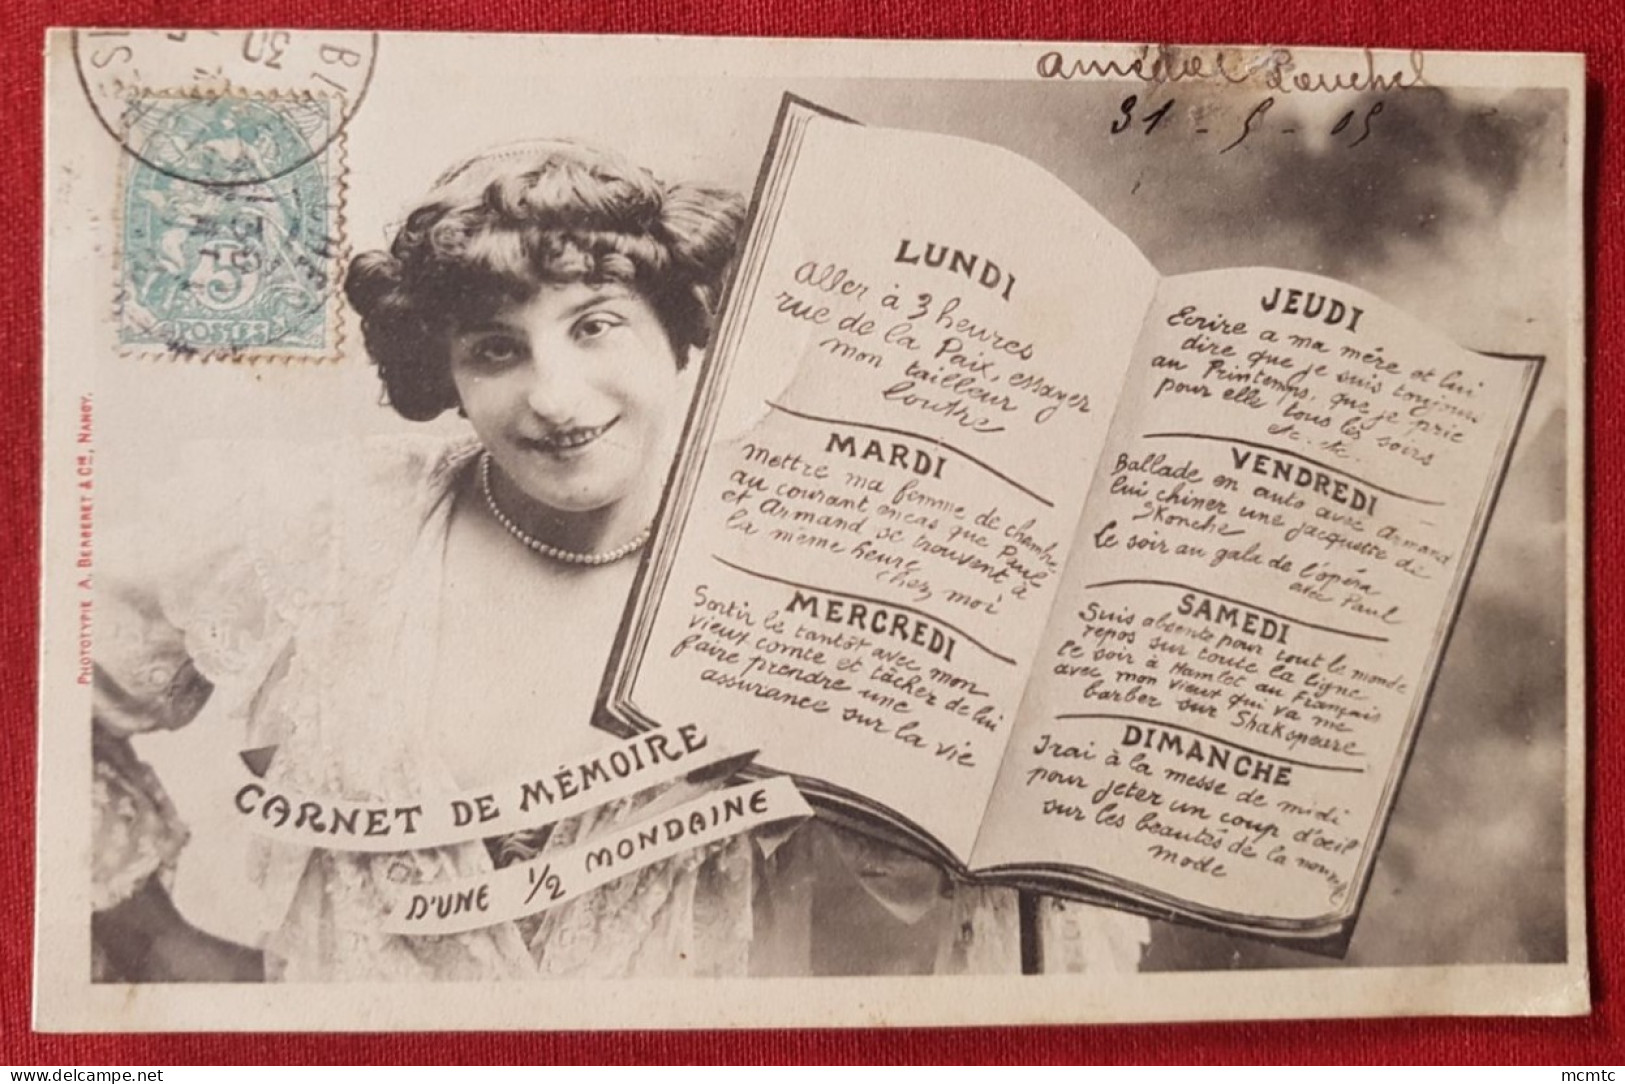 Amédée Louchel
31 - 5 - 05
5
POSTES
PHOTOTYPIE A. BERGERET & Cie, NANCY.
LUNDI
Aller à 3 heures
rue de la Paix, essayer
mon tailleur
loutre
MARDI
Mettre ma femme de chambre
au courant en cas que Paul
et Armand se trouvent à
la même heure
chez moi
MERCREDI
Sortir le tantôt avec mon
vieux comte et tâcher de lui
faire prendre une
assurance sur la vie
JEUDI
Ecrire a ma mére et lui
dire que je suis toujours
au Printemps, que je prie
pour elle tous les soirs
etc. etc.
VENDREDI
Ballade en auto avec Armand
lui chiner une jacquette de
Skonche
Le soir au gala de l'opéra
avec Paul
SAMEDI
Suis absente pour tout le monde
repos sur toute la ligne
le soir à Hamlet au Français
avec mon vieux qui va me
barber sur Shakspeare
DIMANCHE
Irai à la messe de midi
pour jeter un coup d'oeil
sur les beautés de la nouvelle
mode
CARNET DE MÉMOIRE
D'UNE 1/2 MONDAINE
mcmtc